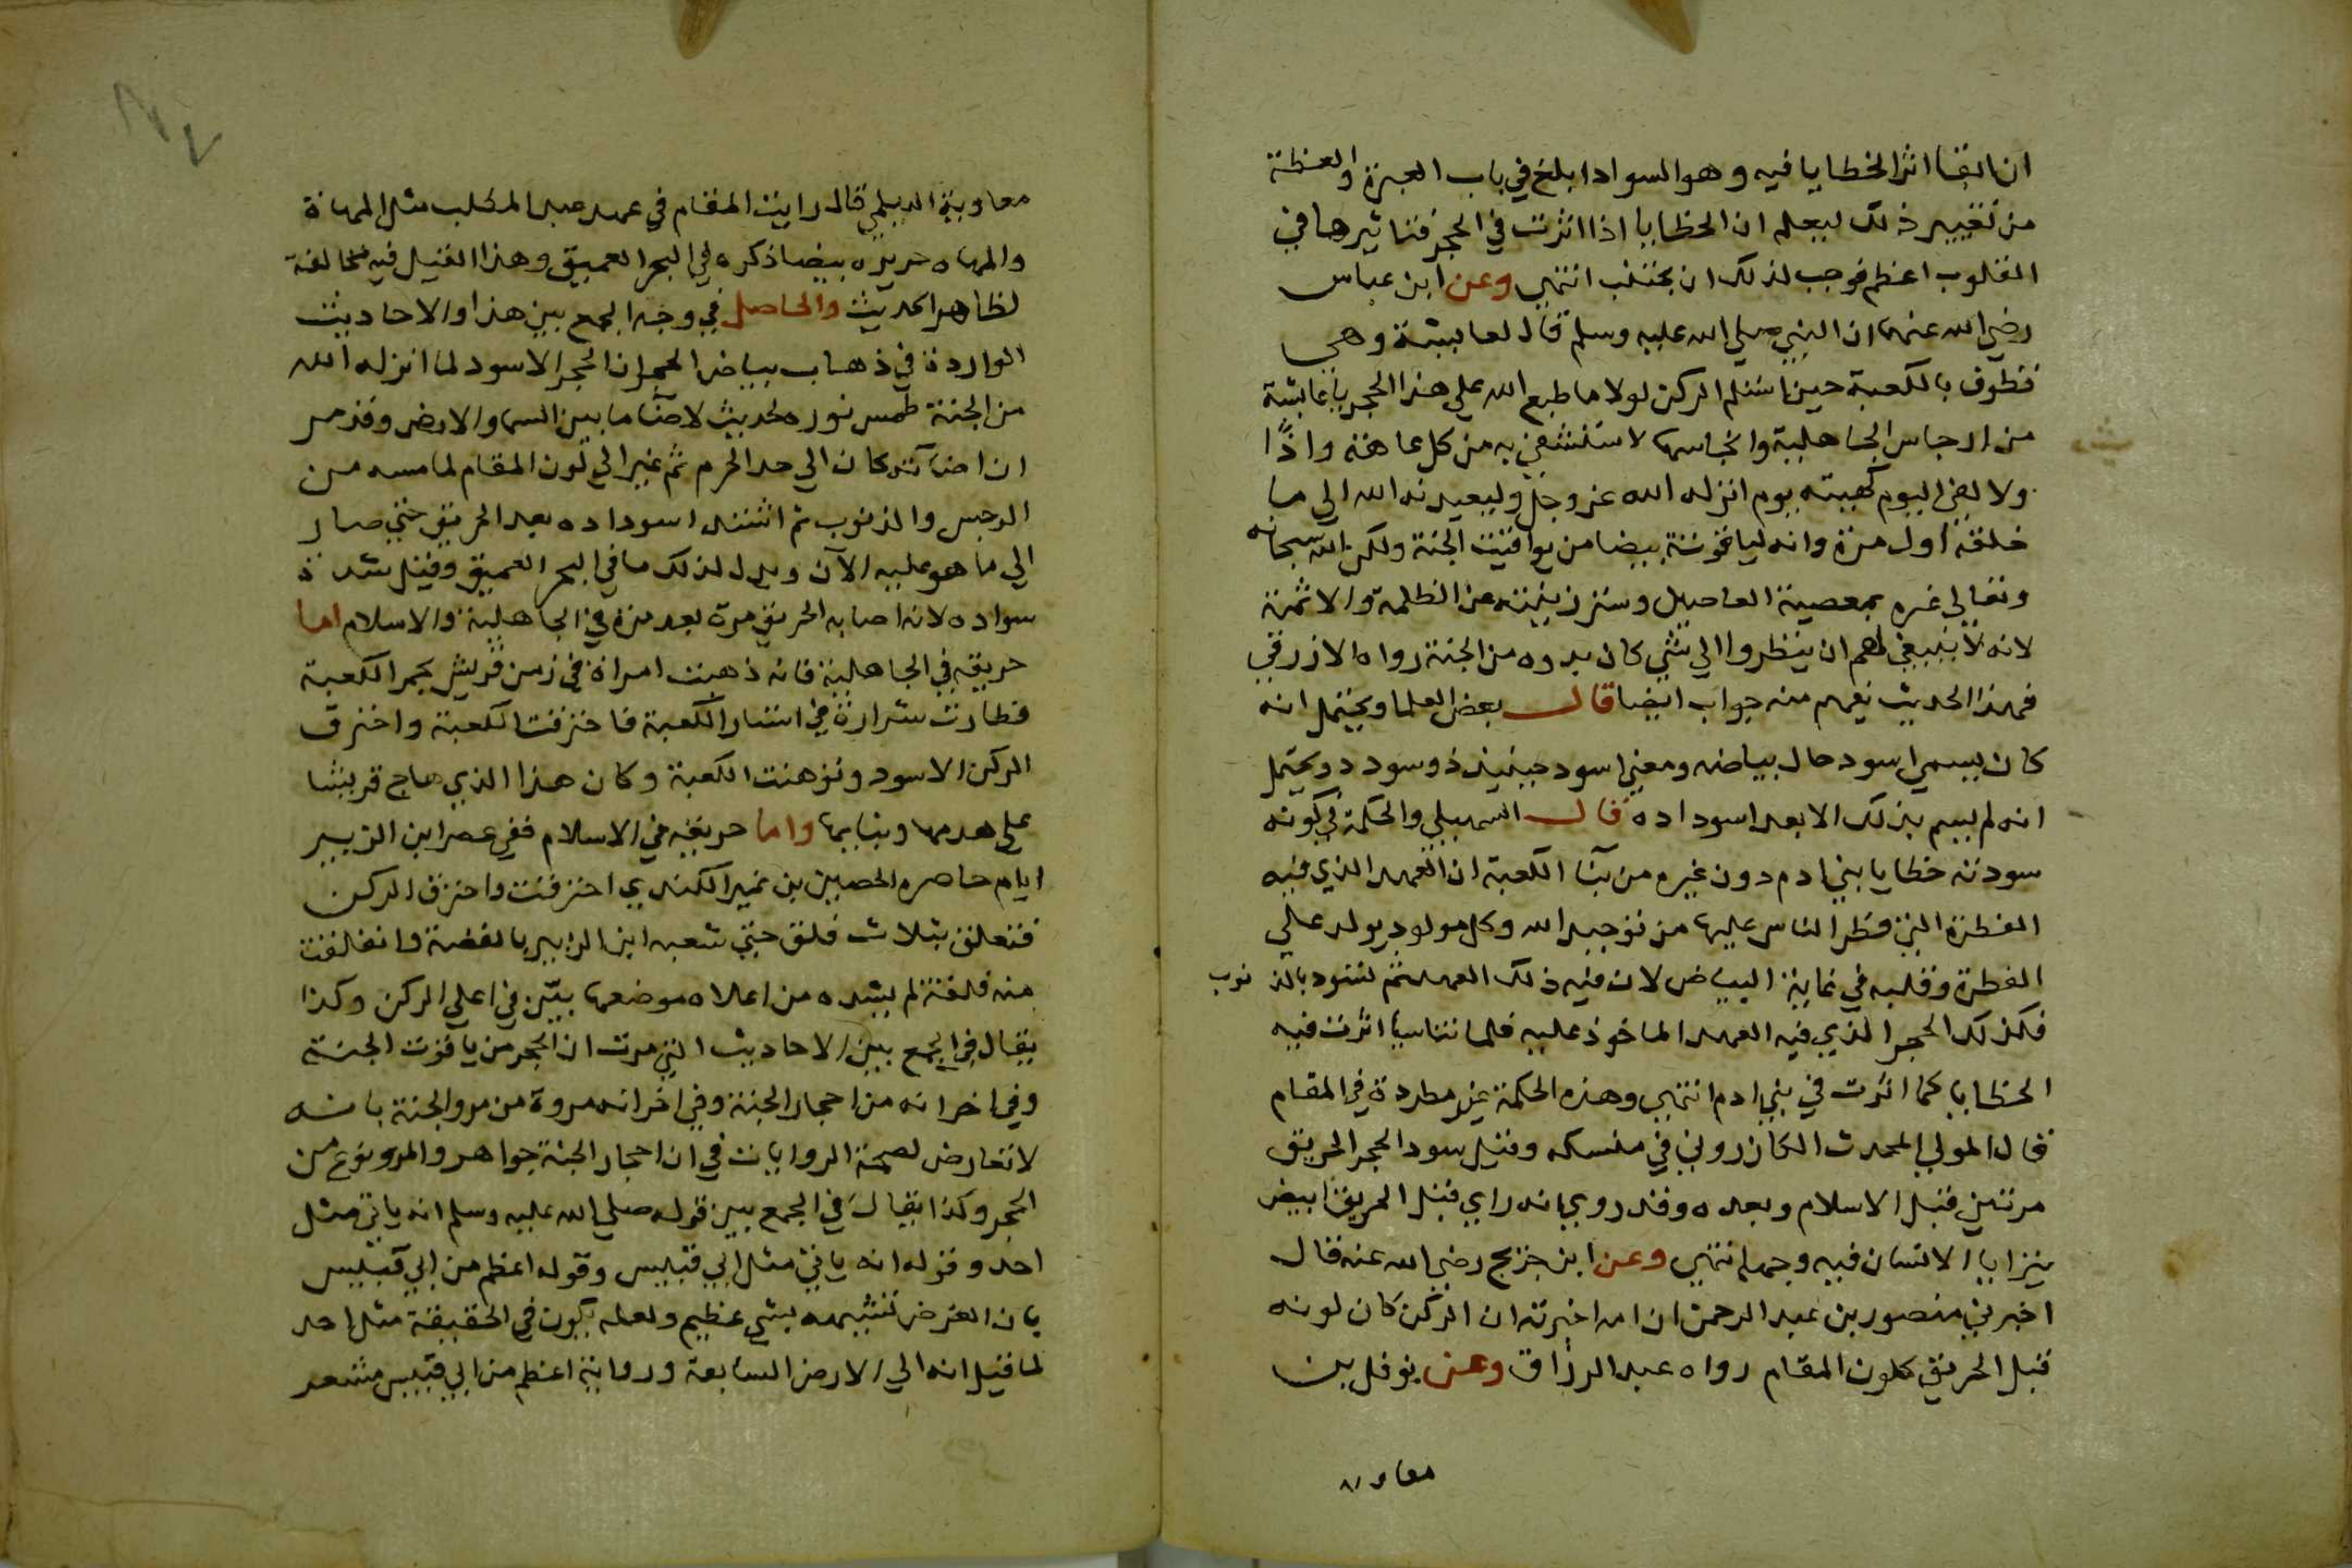 ان ابقا اثر الخطايا فيه وهو السواد ابلغ في باب العبرة والعظة
من تغيير ذلك ليعلم ان الخطايا اذا اثرت في الحجر فتاثيرها في
القلوب اعظم فوجب لذلك ان يجتنب انتهي وعن ابن عباس
رضي الله عنهما ان النبي صلي الله عليه وسلم قال لعايشة وهي
تطوف بالكعبة حين استلم الركن لولا ما طبع الله علي هذا الحجر يا عايشة
من ارجاس الجاهلية وانجاسها لاستشفي به من كل عاهة واذًا
ولالفي اليوم كهيئته يوم انزله الله عز وجل وليعيدنه الله الي ما
خلقه اول مرة وانه لياقوتة بيضا من يواقيت الجنة ولكن الله سبحانه
وتعالي غيره بمعصية العاصين وستر زينته عن الظلمة والاثمة
لانه لا ينبغي لهم ان ينظروا الي شي كان بدوه من الجنة رواه الازرقي
فهذا الحديث يفهم منه جواب ايضا قال بعض العلما ويحتمل انه
كان يسمي اسود حال بياضه ومعني اسود حينيذ ذو سودد ويحتمل
انه لم يسم بذلك الا بعد اسوداده قال السهيلي والحكمة في كونه
سودته خطايا بني ادم دون غيره من بنا الكعبة ان العهد الذي فيه
الفطرة التي فطر الناس عليها من توحيد الله وكل مولود يولد علي
الفطرة وقلبه في غاية البياض لان فيه ذلك العهد ثم لتسود بالذنوب
فكذلك الحجر الذي فيه العهد الماخوذ عليه فلما تناسبا اثرت فيه
الخطايا كما اثرت في بني ادم انتهي وهذه الحكمة غير مطردة في المقام
قال المولي المحدث الكازروني في منسكه وقيل سود الحجر الحريق
مرتين قبل الاسلام وبعده وقد روي انه راي قبل الحريق ابيض
يتزايا الانسان فيه وجهه انتهي وعن ابن جريج رضي الله عنه قال
اخبرني منصور بن عبد الرحمن ان امه اخبرته ان الركن كان لونه
قبل الحريق كلون المقام رواه عبد الرزاق وعن نوفل بن
معاوية
معاوية الديلمي قال رايت المقام في عهد عبد المطلب مثل المهاة
والمهاه خريزه بيضا ذكره في البحر العميق وهذا القيل فيه مخالفة
لظاهر الحديث والحاصل في وجه الجمع بين هذا والاحاديث
الواردة في ذهاب بياض الحجر ان الحجر الاسود لما انزله الله
من الجنة طمس نوره لحديث لاضا ما بين السما والارض وقد مر
ان اضآته كان الي حد الحرم ثم غير الي لون المقام لما مسه من
الرجس والذنوب ثم اشتد اسوداده بعد الحريق حتي صار
الي ما هو عليه الآن ويدل لذلك ما في البحر العميق وقيل شدة
سواده لانه اصابه الحريق مرة بعد مرة في الجاهلية والاسلام اما
حريقه في الجاهلية فانه ذهبت امراة في زمن قريش تجمر الكعبة
فطارت شرارة في استار الكعبة فاحترقت الكعبة واحترق
الركن الاسود وتوهنت الكعبة وكان هذا الذي هاج قريشا
علي هدمها وبنايها واما حريقه في الاسلام ففي عصر ابن الزبير
ايام حاصره الحصين بن نمير الكندي احترقت واحترق الركن
فتعلق بثلاث فلق حتي شعبه ابن الزبير بالفضة وانفلقت
منه فلقة لم يشده من اعلاه موضعها بيّن في اعلي الركن وكذا
يقال في الجمع بين الاحاديث التي مرت ان الحجر من ياقوت الجنة
وفي اخر انه من احجار الجنة وفي اخر انه مروة من مرو الجنة بانه
لا تعارض لصحة الروايات في ان احجار الجنة جواهر والمرو نوع من
الحجر وكذا يقال في الجمع بين قوله صلي الله عليه وسلم انه ياتي مثل
احد وقوله انه ياتي مثل ابي قبيس وقوله اعظم من ابي قبيس
بان الغرض تشبيهه بشي عظيم ولعله يكون في الحقيقة مثل احد
لما قيل انه الي الارض السابعة ورواية اعظم من ابي قبيس مشعر